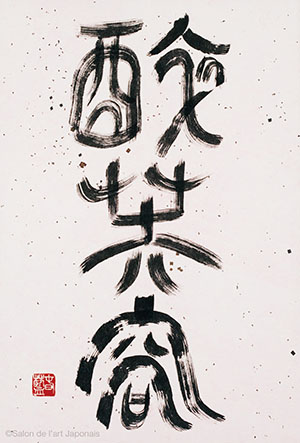 醉
芙
容
©Salon de l'art Japonais